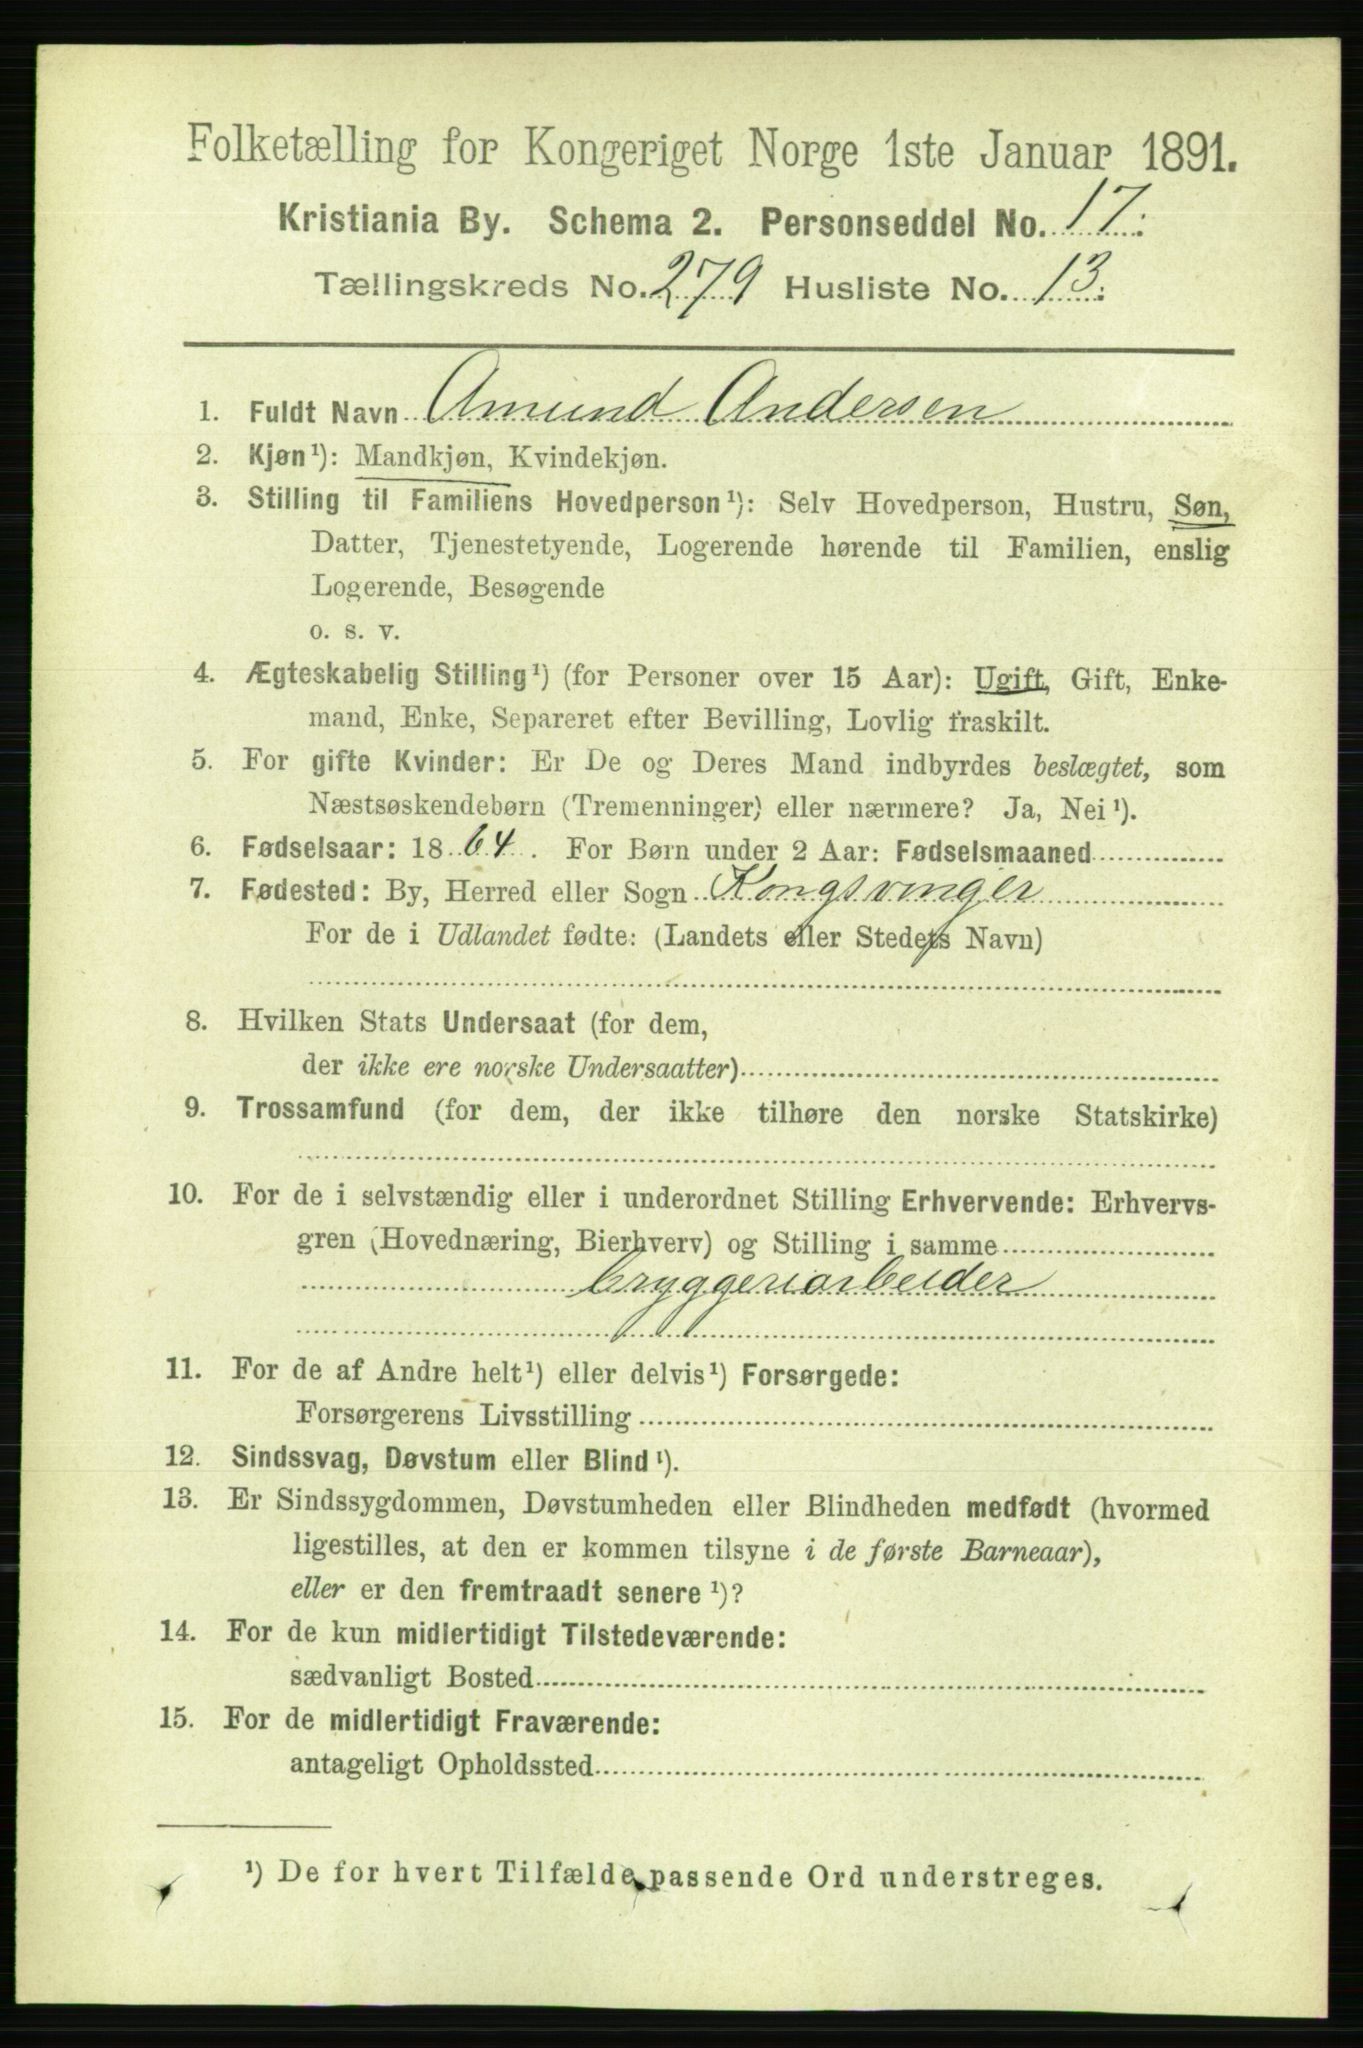 Folketælling for Kongeriget Norge 1ste Januar 1891.
Kristiania By. Schema 2. Personseddel No. 17.
Tællingskreds No. 279 Husliste No. 13.
1. Fuldt Navn Amund Andersen
2. Kjøn¹): Mandkjøn, Kvindekjøn.
3. Stilling til Familiens Hovedperson¹): Selv Hovedperson, Hustru, Søn,
Datter, Tjenestetyende, Logerende hørende til Familien, enslig
Logerende, Besøgende
o. s. v.
4. Ægteskabelig Stilling¹) (for Personer over 15 Aar): Ugift, Gift, Enke-
mand, Enke, Separeret efter Bevilling, Lovlig fraskilt.
5. For gifte Kvinder: Er De og Deres Mand indbyrdes beslægtet, som
Næstsøskendebørn (Tremenninger) eller nærmere? Ja, Nei¹).
6. Fødselsaar: 1864. For Børn under 2 Aar: Fødselsmaaned
7. Fødested: By, Herred eller Sogn Kongsvinger
For de i Udlandet fødte: (Landets eller Stedets Navn)
8. Hvilken Stats Undersaat (for dem,
der ikke ere norske Undersaatter)
9. Trossamfund (for dem, der ikke tilhøre den norske Statskirke)
10. For de i selvstændig eller i underordnet Stilling Erhvervende: Erhvervs-
gren (Hovednæring, Bierhverv) og Stilling i samme
bryggeriarbeider
11. For de af Andre helt¹) eller delvis¹) Forsørgede:
Forsørgerens Livsstilling
12. Sindssvag, Døvstum eller Blind¹).
13. Er Sindssygdommen, Døvstumheden eller Blindheden medfødt (hvormed
ligestilles, at den er kommen tilsyne i de første Barneaar),
eller er den fremtraadt senere¹)?
14. For de kun midlertidigt Tilstedeværende:
sædvanligt Bosted
15. For de midlertidigt Fraværende:
antageligt Opholdssted
¹) De for hvert Tilfælde passende Ord understreges.